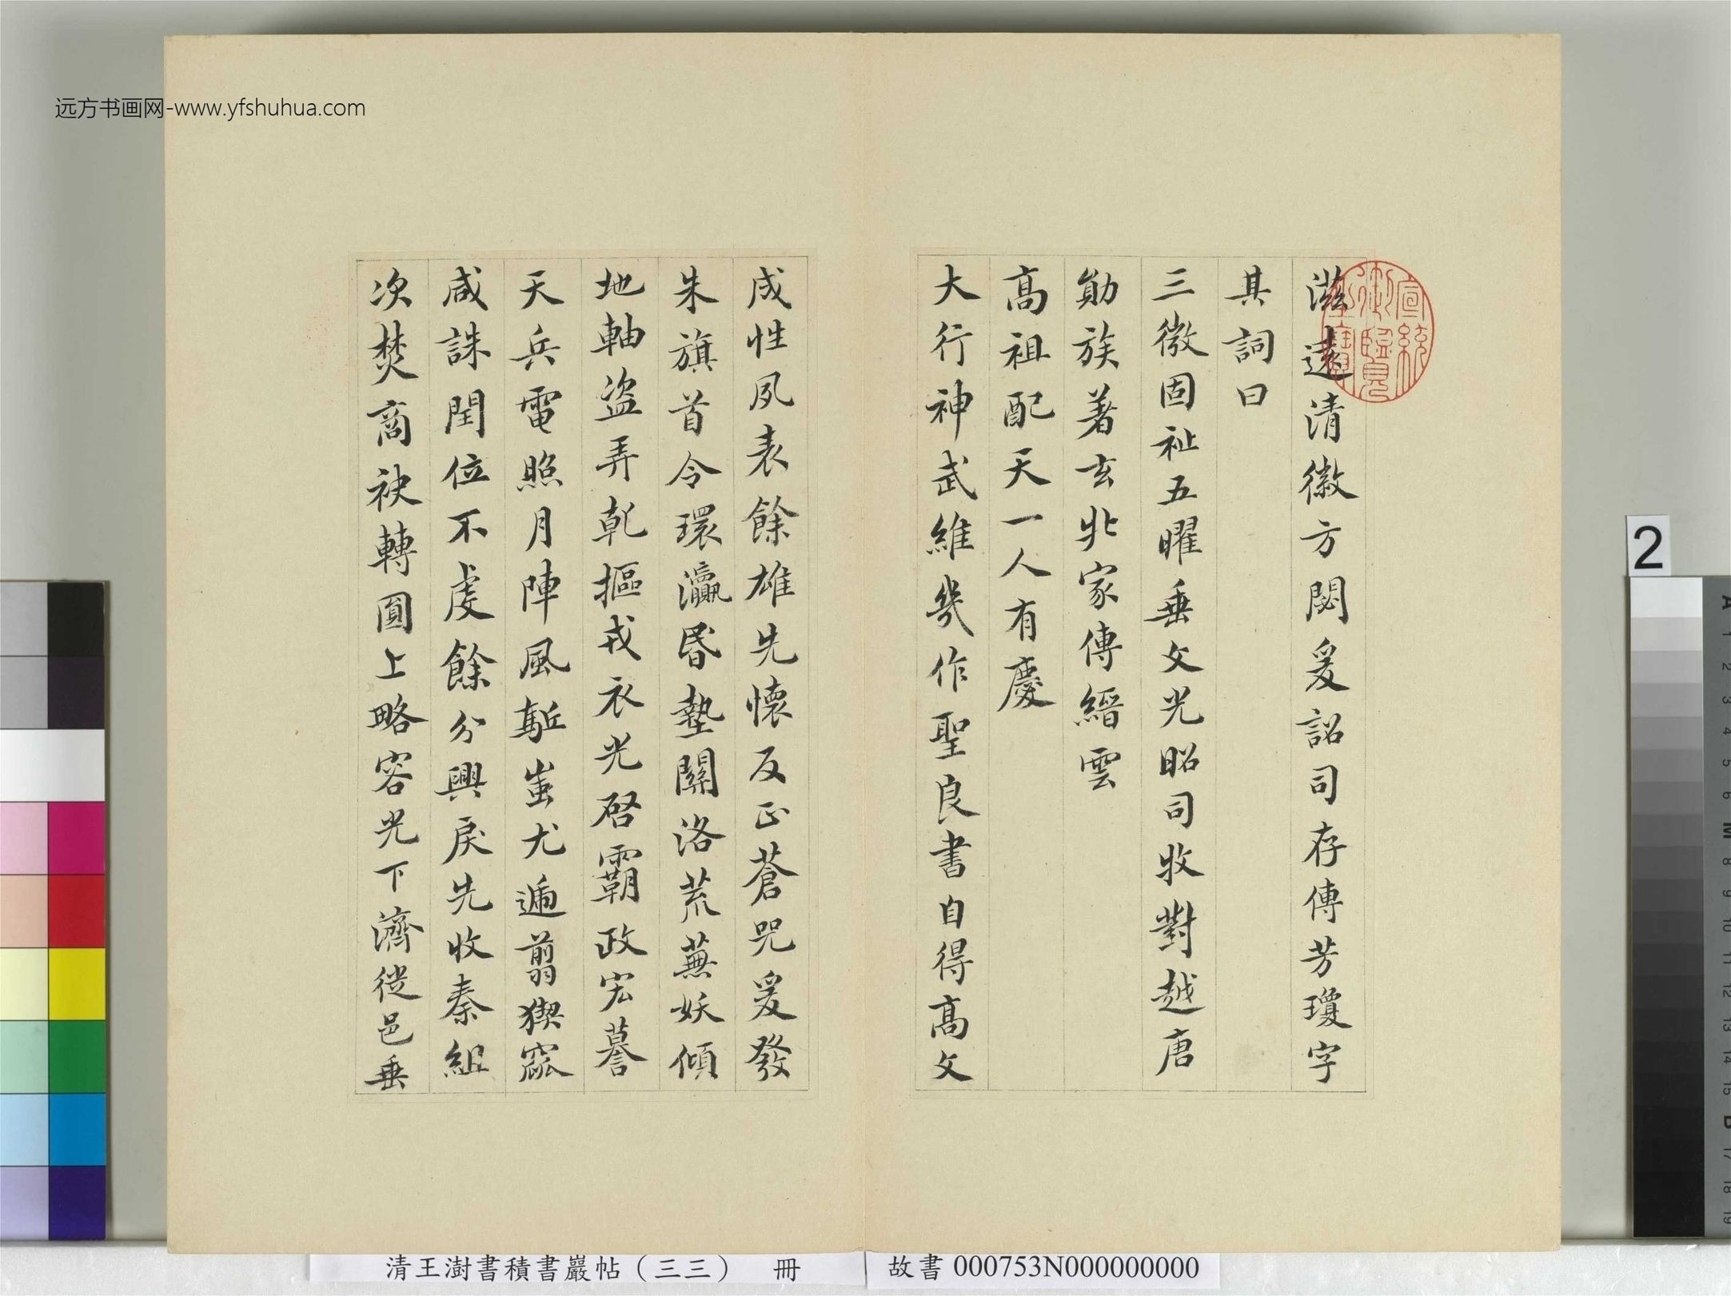 远方书画网-www.yfshuhua.com
宣統御覽之寶
滋遠清徽方閟爰詔司存傳芳瓊字
其詞曰
三微固祉五曜垂文光昭司牧對越唐
勛族著玄丠家傳縉雲
高祖配天一人有慶
大行神武維幾作聖良書自得高文
成性夙表餘雄先懷反正蒼咒爰發
朱旗首令環瀛昏墊關洛荒蕪妖傾
地軸盜弄乾摳戎衣光啓霸政宏謩
天兵電照月陣風駈蚩尤遍翦猰窳
咸誅閏位不虔餘分興戾先收秦組
次焚商袂轉圓上略容光下濟從邑垂
清王澍書積書巖帖（三三） 冊
故書 000753N000000000
2